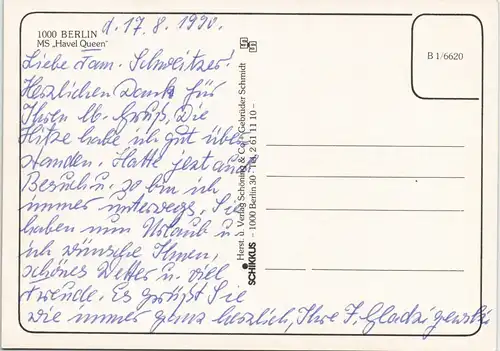 1000 BERLIN
MS „Havel Queen"
d. 17.8.1990.
Liebe Fam. Schweitzer!
Herzlichen Dank für
Ihren lb. Gruß. Die
Hitze habe ich gut über
standen. Hatte jezt auch
Besuch u. so bin ich
immer unterwegs. Sie
haben nun Urlaub u.
ich wünsche Ihnen,
schönes Wetter u. viel
Freude. Es grüßt Sie
wie immer ganz herzlich, Ihre F. Gladzigewski
Herst. u. Verlag Schöning & Co · Gebrüder Schmidt
SCHIKKUS – 1000 Berlin 30 – Tel. 2 61 11 10 –
B 1/6620